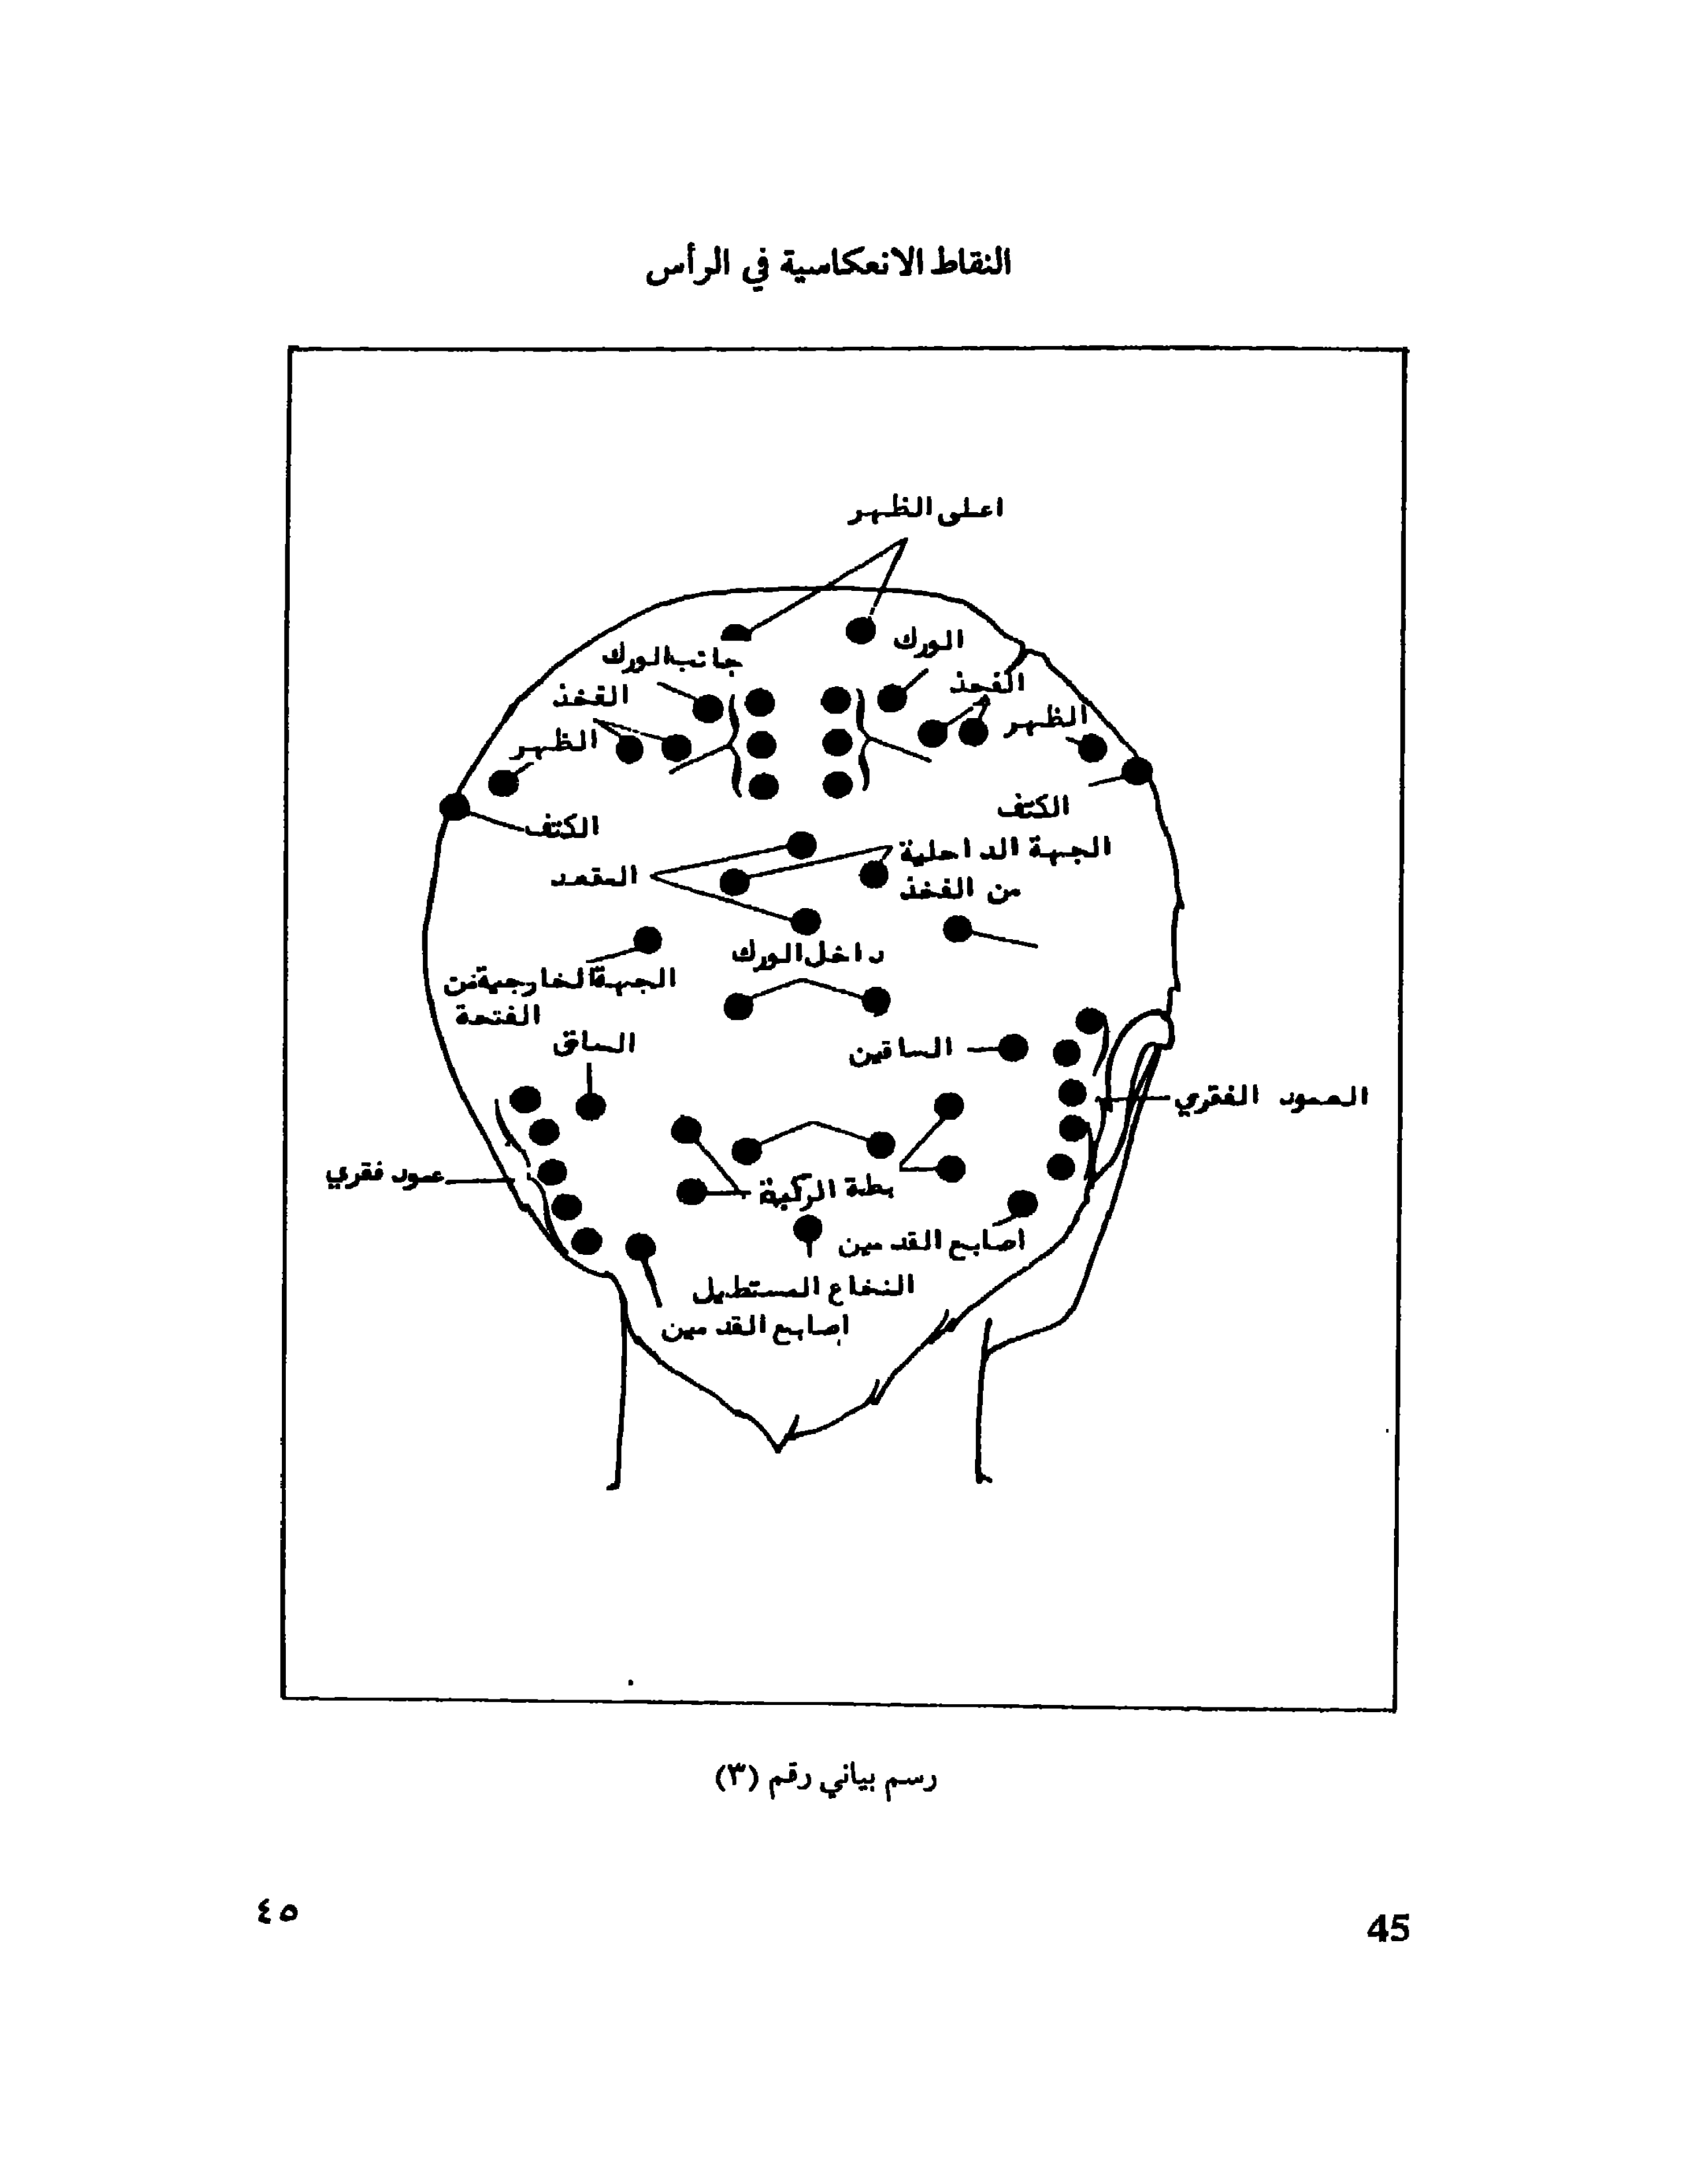 النقاط الانعكاسية في الرأس
اعلى الظهر
الورك
جانب الورك
الفخذ
الفخذ
الظهر
الظهر
الكتف
الكتف
الجهة الداخلية
من الفخذ
المقعد
داخل الورك
الجهة الخارجية من
الفتحة
الساق
الساقين
العمود الفقري
عمود فقري
بطة الركبة
اصابع القدمين
النخاع المستطيل
إصابع القدمين
رسم بياني رقم (٣)
٤٥
45